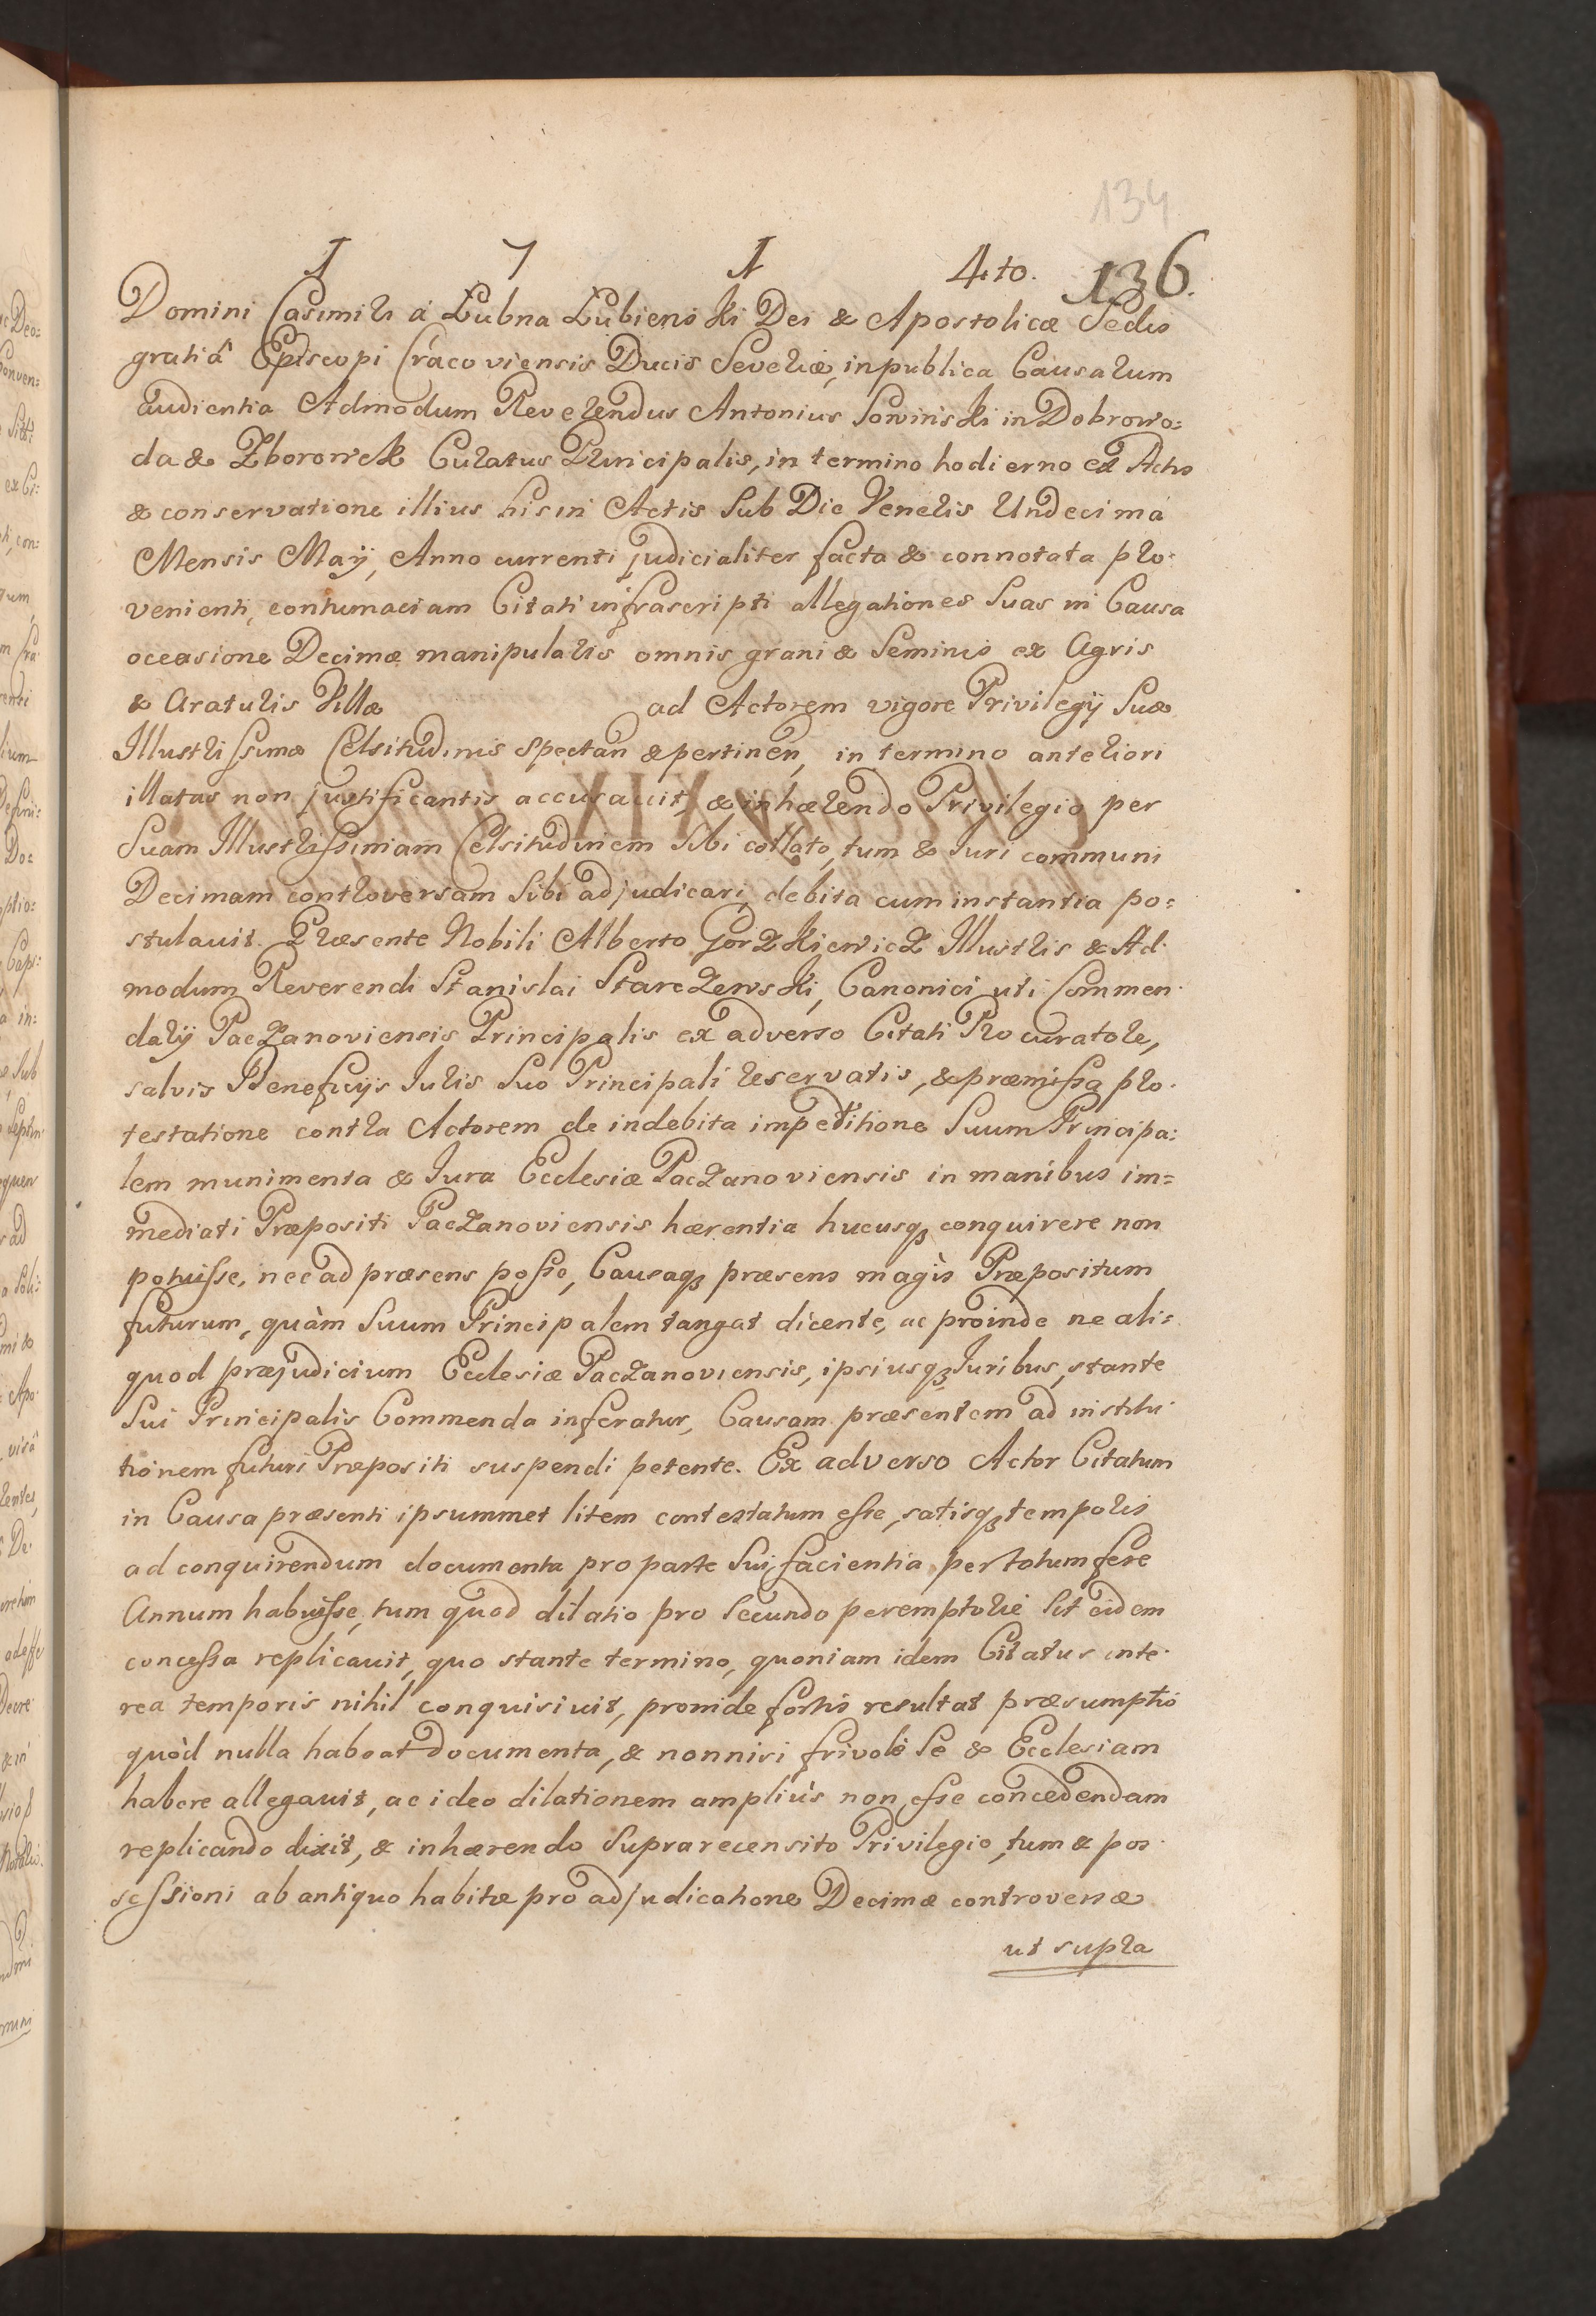 134
1 7 1 4to. 136.
Domini Casimiri á Łubna Łubienski Dei & Apostolicæ Sedis
gratiâ Episcopi Cracoviensis Ducis Severiæ, in publica Causarum
Audientia Admodum Reverendus Antonius Sowinski in Dobrowo=
da & Zborowek Curatus Principalis, in termino hodierno ex Actis
& conservatione illius hisin Actis Sub Die Veneris Undecimá
Mensis Maÿ, Anno currenti judicialiter facta & connotata pro-
venienti, contumaciam Citati infrascripti allegationes Suas in Causa
occasione Decimæ manipularis omnis grani & Seminis ex Agris
& Araturis Villæ ad Actorem vigore Privilegÿ Suæ
Illustrissimæ Celsitudinis spectan & pertinen, in termino anteriori
illatas non justificantis accusavit, & inhærendo Privilegio per
Suam Illustrissimam Celsitudinem Sibi collato, tum & Juri communi
Decimam controversam Sibi adjudicari, debita cum instantia po=
stulavit. Præsente Nobili Alberto Gorzkiewicz Illustris & Ad-
modum Reverendi Stanislai Starczewski, Canonici uti Commen-
darÿ Paczanoviensis Principalis ex adverso Citati Procuratore,
salvis Beneficÿs Juris Suo Principali reservatis, & præmissa pro-
testatione contra Actorem de indebita impeditione Suum Principa=
lem munimenta & Jura Ecclesiæ Paczanoviensis in manibus im=
mediati Præpositi Paczanoviensis hærentia hucusqꝫ conquirere non
potuisse, nec ad præsens posse, Causaqꝫ præsens magìs Præpositum
futurum, quàm Suum Principalem tangat dicente, ac proinde ne ali=
quod præjudicium Ecclesiæ Paczanoviensis, ipsiusqꝫ Juribus, stante
Sui Principalis Commenda inferatur, Causam præsentem ad institu-
tionem futuri Præpositi suspendi petente. Ex adverso Actor Citatum
in Causa præsenti ipsummet litem contestatum esse, satisqꝫ temporis
ad conquirendum documenta pro parte Sui facientia per totum fere
Annum habuisse, tum quod dilatio pro Secundo peremptorie Sit eidem
concessa replicavit, quo stante termino, quoniam idem Citatus inte-
rea temporis nihil conquisivit, proinde fortis resultat præsumptio
quòd nulla habeat documenta, & nonnisi frivolè Se & Ecclesiam
habere allegavit, ac ideo dilationem ampliùs non esse concedendam
replicando dixit, & inhærendo Suprarecensito Privilegio, tum & pos-
sessioni ab antiquo habitæ pro adjudicatione Decimæ controversæ
ut supra